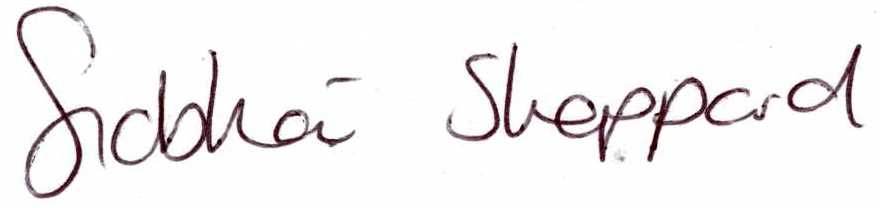 Siobhán Sheppard